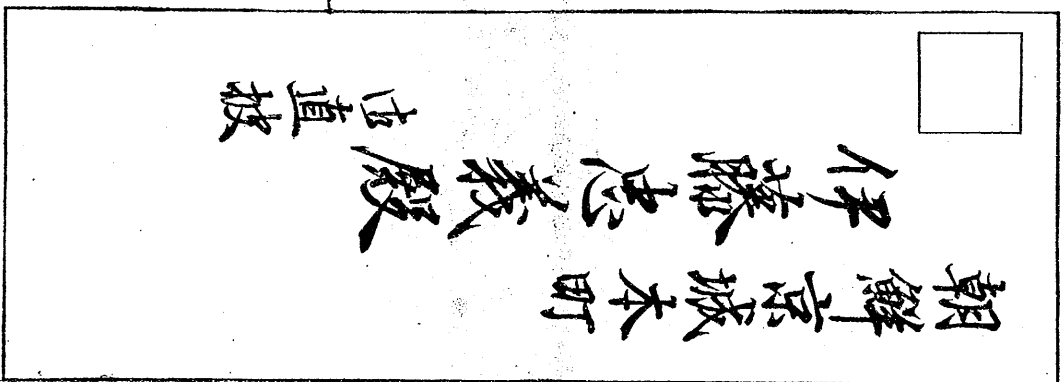 朝鮮京城本町
伊藤忠義殿
吉直披